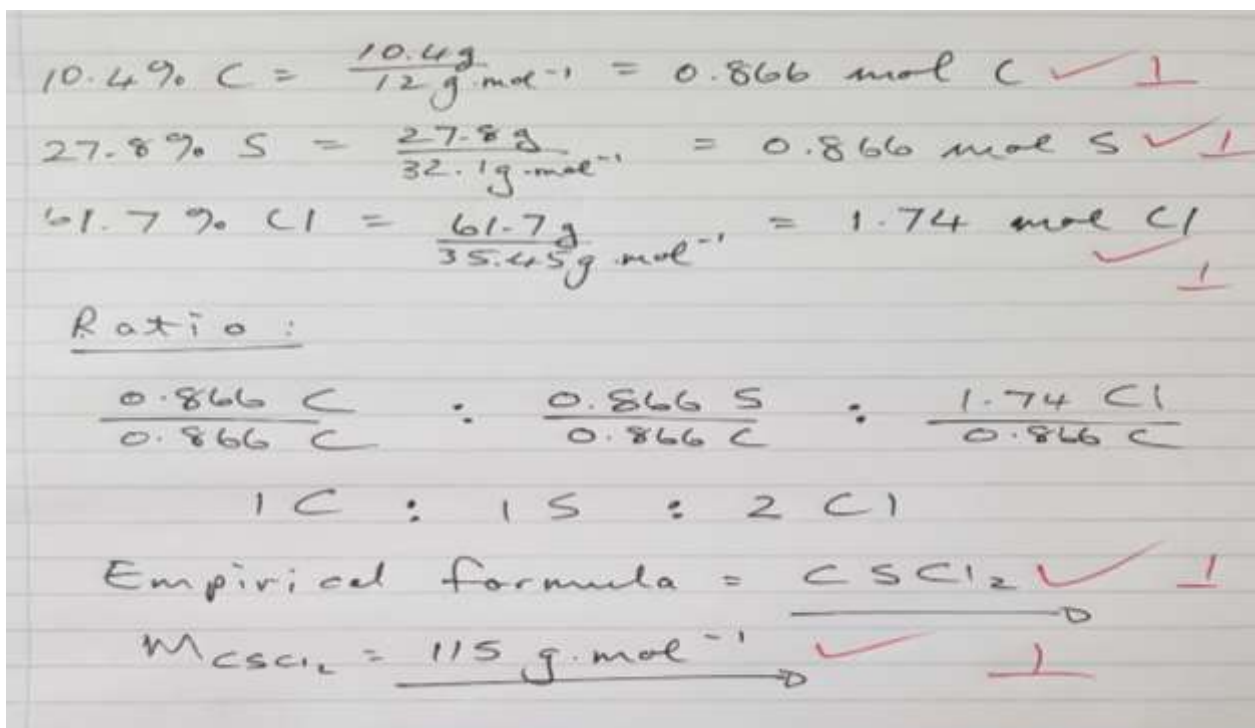 10.4% C = 10.4g / 12 g.mol⁻¹ = 0.866 mol C ✓ 1
27.8% S = 27.8g / 32.1g.mol⁻¹ = 0.866 mol S ✓ 1
61.7% Cl = 61.7g / 35.45g.mol⁻¹ = 1.74 mol Cl
✓ 1
Ratio:
0.866 C / 0.866 C : 0.866 S / 0.866 C : 1.74 Cl / 0.866 C
1 C : 1 S : 2 Cl
Empirical formula = CSCl₂ ✓ 1
M CSCl₂ = 115 g.mol⁻¹ ✓ 1